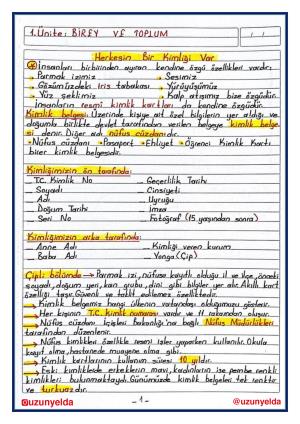 1.Ünite: BİREY VE TOPLUM
Herkesin Bir Kimliği Var
İnsanları birbirinden ayıran kendine özgü özellikleri vardır;
Parmak izimiz Sesimiz
Gözümüzdeki İris tabakası Yürüyüşümüz
Yüz şeklimiz Kalp atışımız bize özgüdür.
İnsanların resmî kimlik kartları da kendine özgüdür.
Kimlik belgesi: Üzerinde kişiye ait özel bilgilerin yer aldığı ve
doğumla birlikte devlet tarafından verilen belgeye kimlik belge-
si denir. Diğer adı nüfus cüzdanıdır.
Nüfus cüzdanı Pasaport Ehliyet Öğrenci Kimlik Kartı
birer kimlik belgesidir.
Kimliğimizin ön tarafında;
T.C. Kimlik No Geçerlilik Tarihi
Soyadı Cinsiyeti
Adı Uyruğu
Doğum Tarihi İmza
Seri No Fotoğraf (15 yaşından sonra)
Kimliğimizin arka tarafında;
Anne Adı Kimliği veren kurum
Baba Adı Yonga (Çip)
Çipli bölümde → Parmak izi, nüfusa kayıtlı olduğu il ve ilçe, önceki
soyadı, doğum yeri, kan grubu, dini gibi bilgiler yer alır. Akıllı kart
özelliği taşır. Güvenli ve taklit edilemez özelliktedir.
Kimlik belgemiz hangi ülkenin vatandaşı olduğumuzu gösterir.
Her kişinin T.C. Kimlik numarası vardır ve 11 rakamdan oluşur.
Nüfus cüzdanı İçişleri bakanlığı'na bağlı Nüfus Müdürlükleri
tarafından düzenlenir.
Nüfus kimlikleri özellikle resmi işler yaparken kullanılır. Okula
kayıt olma, hastanede muayene olma gibi.
Kimlik kartlarının kullanım süresi 10 yıldır.
Eski kimliklerde erkeklerin mavi, kadınların ise pembe renkli
kimlikleri bulunmaktaydı. Günümüzde kimlik belgeleri tek renktir
ve turkuazdır.
@uzunyelda -1- @uzunyelda